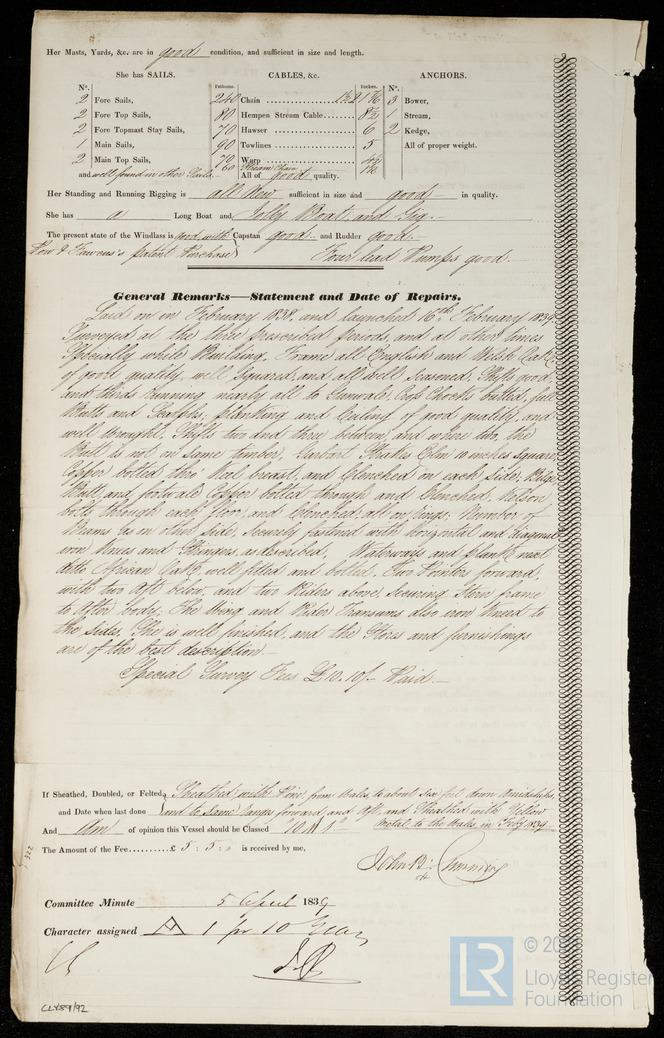 Her Masts, Yards, &c. are in good condition, and sufficient in size and length.
She has SAILS. CABLES, &c. ANCHORS.
Nº. Fathoms. Inches. Nº.
2 Fore Sails, 240 Chain 1 7/16 3 Bower,
2 Fore Top Sails, 80 Hempen Stream Cable 8½ 1 Stream,
2 Fore Topmast Stay Sails, 70 Hawser 6 2 Kedge,
1 Main Sails, 90 Towlines 5 All of proper weight.
2 Main Top Sails, 70 Warp 4½
60 Stream Chain
and well found in other Sails. All of good quality.
Her Standing and Running Rigging is all New sufficient in size and good in quality.
She has a Long Boat and Jolly Boat and Gig.
The present state of the Windlass is good with Capstan good and Rudder good.
Patent Purchase Four lead Pumps good.
General Remarks—Statement and Date of Repairs.
Laid on in February 1838, and launched 16th February 1839.
Surveyed at the three prescribed periods, and at other times
Specially while Building. Frame all English and Welsh Oak,
of good quality, well squared, and all well seasoned. Shifts good,
and thirds running nearly all to Gunwale. Cross Chocks butted, full
Butts and Scarphs; planking and Ceiling of good quality, and
well wrought. Shifts two and three between, and where two, the
Butt is not on same timber. Garboard Strakes Elm 10 inches square
Copper bolted thro' Keel breast, and Clenched on each side; Bilge
Butt, and footwale Copper bolted through and Clenched. Keelson
bolts through each floor, and Clenched all on rings; Number of
Beams as on other side, securely fastened with horizontal and diagonal
iron Knees and Stringers as described. Waterways and plank next
ditto African Oak, well fitted and bolted. Two Pointers forward,
with two Aft below, and two Riders above, securing Stern frame
to After body; The Wing and Rider Transums also iron Kneed to
the Sides. She is well finished, and the Stores and furnishings
are of the best description.
Special Survey Fees £10.10/- Paid.
If Sheathed, Doubled, or Felted, Sheathed with Pine, from Wales, to about six feet down amidships,
and Date when last done and to same range forward and Aft, and Sheathed with Yellow
Metal to the Wales, in Feby 1839
And I am of opinion this Vessel should be Classed 10 A 1
The Amount of the Fee £ 5 : 5 : 0 is received by me,
John B. Cumming
Committee Minute 5 April 1839
Character assigned A 1 for 10 Years
322
CLY89/92
LR
© 20
Lloyd's Register
Foundation